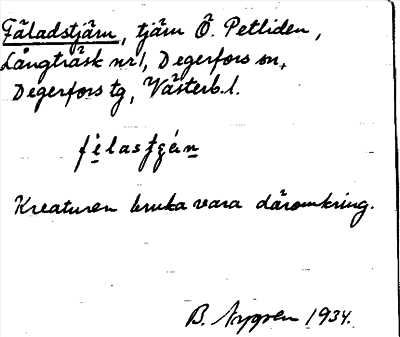 Fäladstjärn, tjärn Ö. Petliden,
Långträsk nr 1, Degerfors sn,
Degerfors tg, Västerb. l.
Kreaturen bruka vara däromkring.
B. 1934.